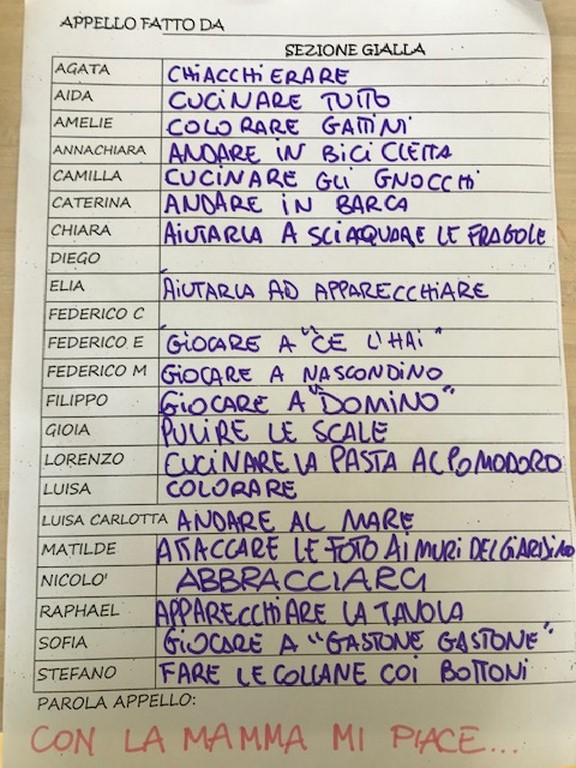 APPELLO FATTO DA
SEZIONE GIALLA
AGATA CHIACCHIERARE
AIDA CUCINARE TUTTO
AMELIE COLORARE GATTINI
ANNACHIARA ANDARE IN BICICLETTA
CAMILLA CUCINARE GLI GNOCCHI
CATERINA ANDARE IN BARCA
CHIARA AIUTARLA A SCIAQUARE LE FRAGOLE
DIEGO
ELIA AIUTARLA AD APPARECCHIARE
FEDERICO C
FEDERICO E GIOCARE A "CE L'HAI"
FEDERICO M GIOCARE A NASCONDINO
FILIPPO GIOCARE A "DOMINO"
GIOIA PULIRE LE SCALE
LORENZO CUCINARE LA PASTA AL POMODORO
LUISA COLORARE
LUISA CARLOTTA ANDARE AL MARE
MATILDE ATTACCARE LE FOTO AI MURI DEL GIARDINO
NICOLO' ABBRACCIARCI
RAPHAEL APPARECCHIARE LA TAVOLA
SOFIA GIOCARE A "GASTONE GASTONE"
STEFANO FARE LE COLLANE COI BOTTONI
PAROLA APPELLO:
CON LA MAMMA MI PIACE...